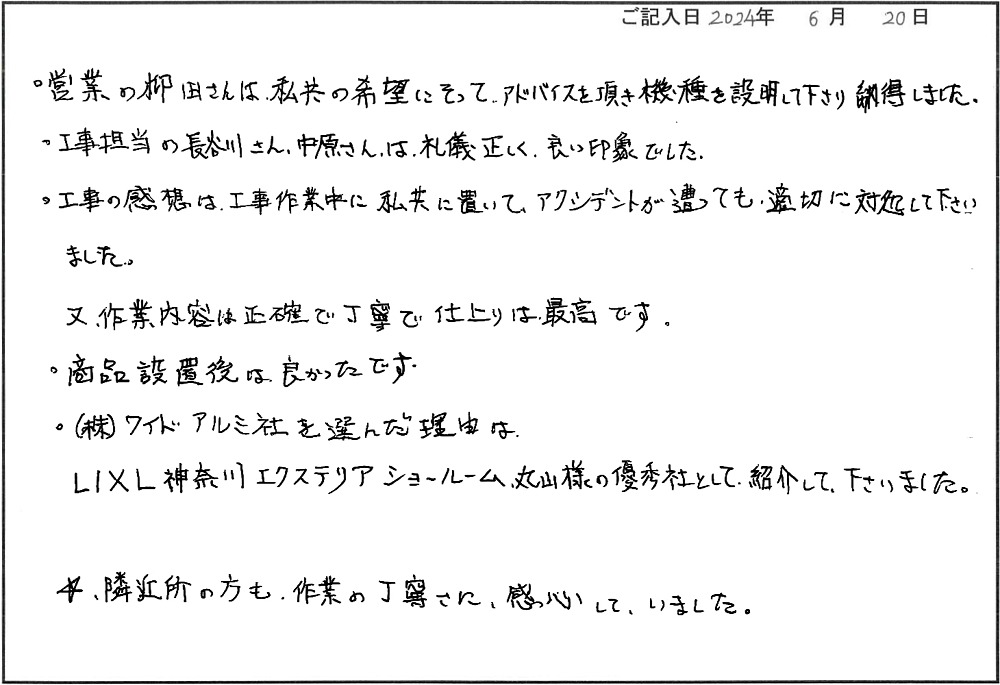 ご記入日 2024年 6月 20日
。営業の柳田さんは、私共の希望にそって、アドバイスを頂き機種を設明して下さり納得しました。
。工事担当の長谷川さん、中原さん、は、礼儀正しく、良い印象でした。
。工事の感想は、工事作業中に私共に置いて、アクシデントが遭っても、適切に対処して下さい
ました。
又、作業内容は正確で丁寧で仕上りは、最高です。
。商品設置後は、良かったです。
。(株)ワイドアルミ社を選んだ理由は、
LIXL神奈川エクステリアショールーム、丸山様の優秀社として、紹介して、下さいました。
☆、隣近所の方も、作業の丁寧さに、感心して、いました。